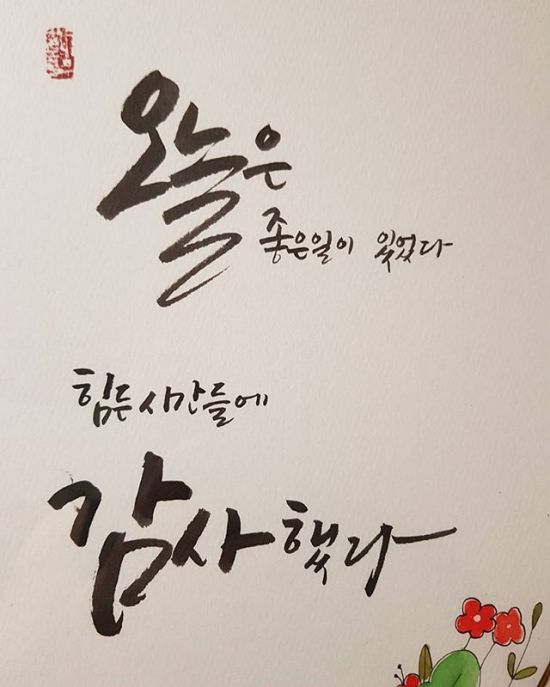 오늘은
좋은일이 있었다
힘든 시간들에
감사했다